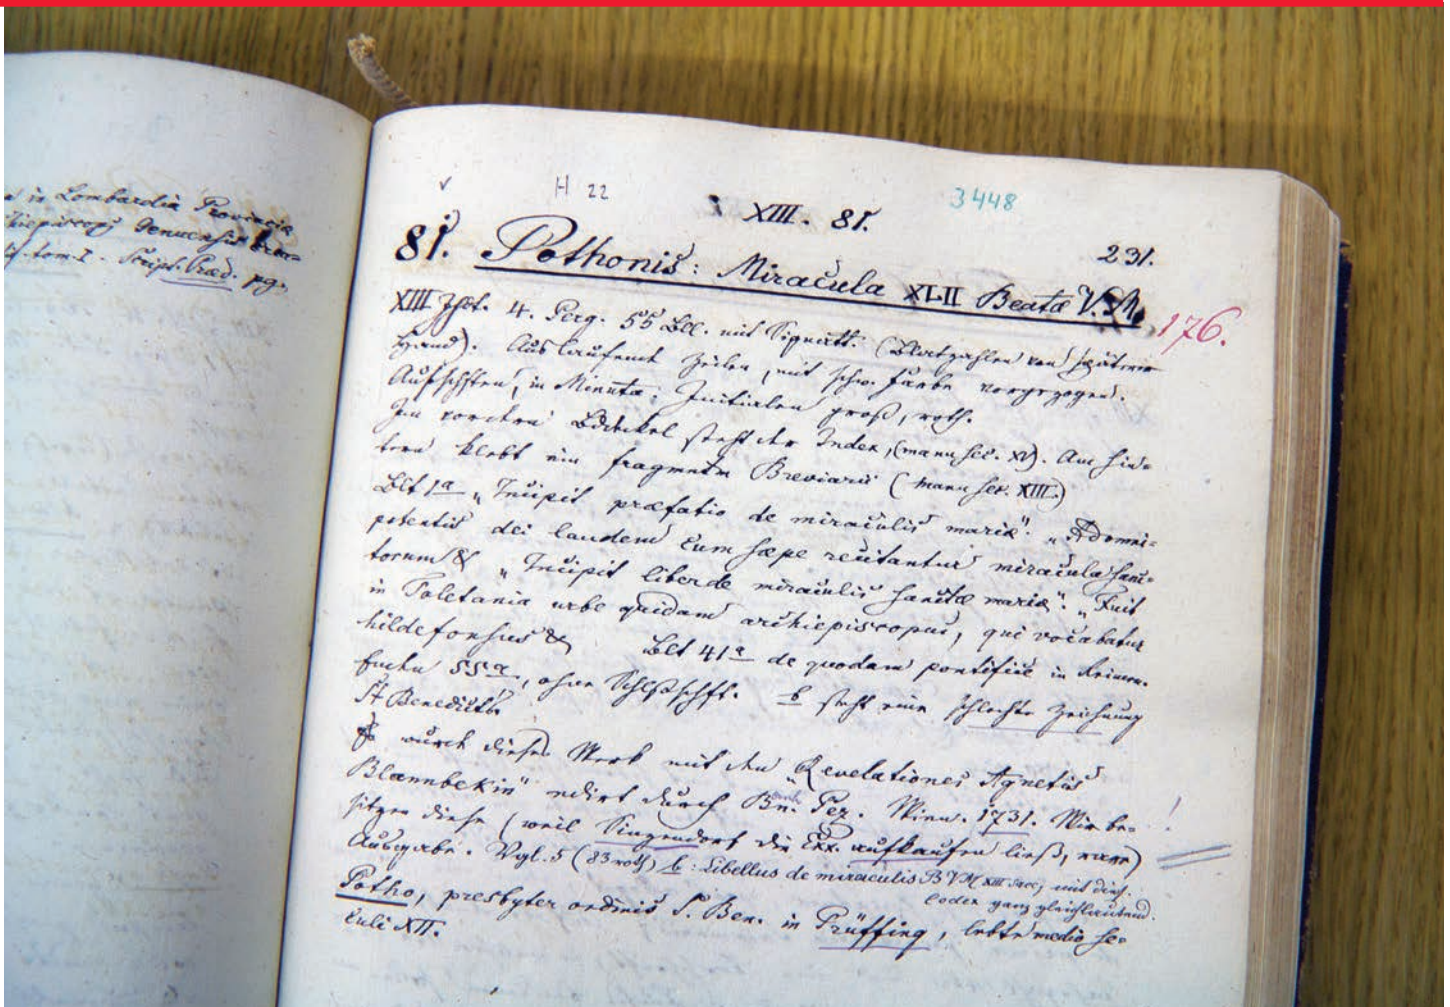 in Lombardia Provincia
Genuensis
tom. I. Script. Præd. pg.
H 22
XIII. 81.
3448
231.
81. Pothonis: Miracula XLII Beatæ V. M.
176.
XIIII Jhdt. 4. Perg. 55 Bll. mit Signatt. (Blattzahlen von späterer
Hand). Auslaufend Zeilen, mit schw. Farbe vorgezogen.
Aufschften, in Minuta; Initialen groß, roth.
Im vordern Bdeckel steht der Index, (manu sec. XV). Am hin-
tern klebt ein fragmentm Breviarii (manu sec. XIII.)
Blt 1a „Incipit præfatio de miraculis mariæ". „Ad omni-
potentis dei laudem cum sæpe recitantur miracula sanc-
torum & „Incipit liber de miraculis sanctæ mariæ". „Fuit
in Toletania urbe quidam archiepiscopus, qui vocabatur
hildefonsus & Blt 41a de quodam pontifice in
Endn 55a, ohne Schlßschft. b steht eine schlechte Zeichnung
St Benedicts.
wurde dieses Werk mit den „Revelationes Agnetis
Blannbekin" edirt durch Bn. Pez. Wien. 1731. Wir be-
sitzen diese (weil Sinzendorf die Exx. aufkaufen ließ, rare)
Ausgabe. Vgl. 5 (83 roth) b: Libellus de miraculis B V M XIII sec, mit dies.
Codex ganz gleichlautend.
Potho, presbyter ordinis S. Ben. in Prüffing, lebte medio se-
culi XII.